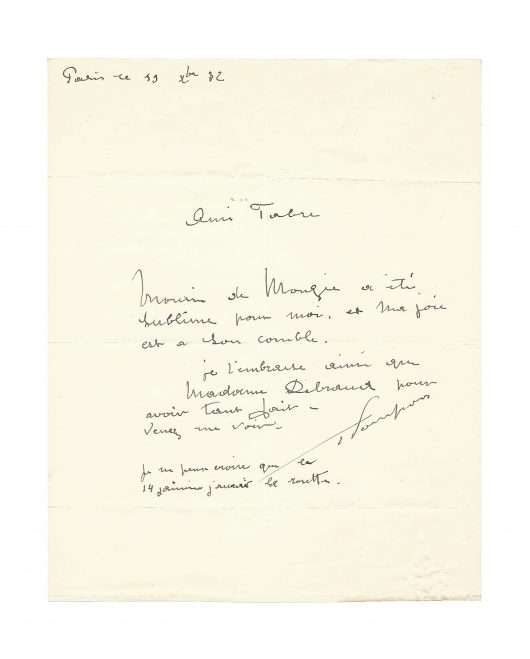 Paris ce 19 Xbre 32
Ami Fabre
de Monzie a été
sublime pour moi, et ma joie
est a son comble.
je t'embrasse ainsi que
Madame pour
avoir tant fait -
venez me voir.
Pompon
je ne peux croire que le
14 janvier j'aurais la rosette.